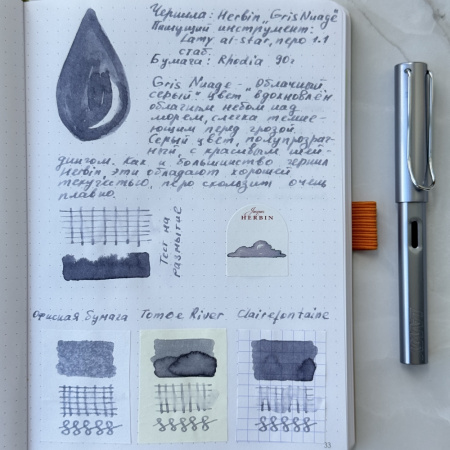 Чернила: Herbin „Gris Nuage"
Пишущий инструмент:
Lamy al-star, перо 1.1
стаб.
Бумага: Rhodia 90г
Gris Nuage - „Облачный
серый" цвет вдохновлён
облачным небом над
морем, слегка темне-
ющим перед грозой.
Серый цвет, полупрозрач-
ный, с красивым шей-
дингом. Как и большинство чернил
Herbin, эти обладают хорошей
текучестью, перо скользит очень
плавно.
Тест на
размытие
Jacques
HERBIN
Офисная бумага Tomoe River Clairefontaine
33
LAMY